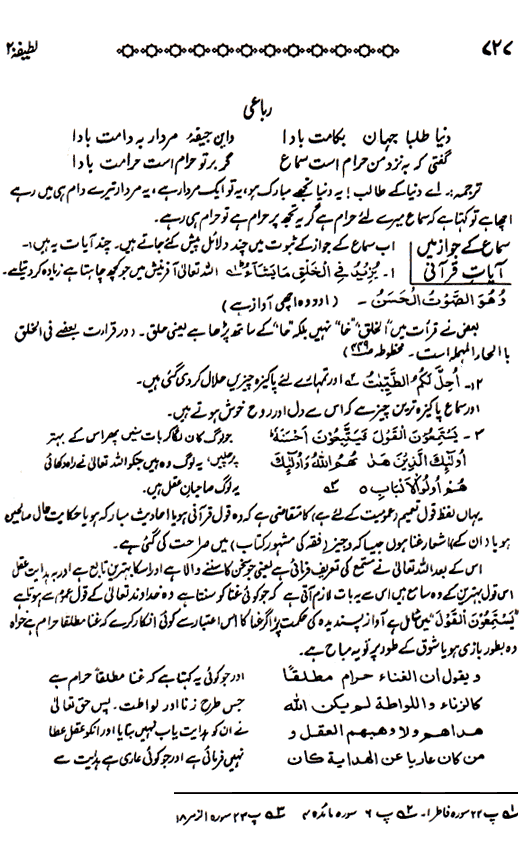 ۷۲۷ لطیفہ ۲۰
رباعی
دنیا طلبا جہان بکامت بادا واین جیفۂ مردار بہ دامت بادا
گفتی کہ بہ نزد من حرام است سماع گر بر تو حرام است حرامت بادا
ترجمہ:۔ اے دنیا کے طالب! یہ دنیا تجھے مبارک ہو، یہ تو ایک مردار ہے، یہ مردار تیرے دام ہی میں رہے
اچھا ہے تو کہتا ہے کہ سماع میرے لئے حرام ہے گر یہ تجھ پر حرام ہے تو حرام ہی رہے۔
سماع کے جواز میں اب سماع کے جواز کے ثبوت میں چند دلائل پیش کئے جاتے ہیں۔ چند آیات یہ ہیں:۔
آیات قرآنی ۱۔ یَزِیْدُ فِی الْخَلْقِ مَا یَشَآءُ ؕ۱ اللہ تعالیٰ آفرینش میں جو کچھ چاہتا ہے زیادہ کر دیتا ہے۔
وَھُوَ الصَّوْتُ الْحَسَنُ ۔ (اور وہ اچھی آواز ہے)
بعض نے قرأت میں "الخلق" "خا" نہیں بلکہ "حا" کے ساتھ پڑھا ہے یعنی حلق۔ (در قرارت بعضے فی الخلق
با الحاء المہملہ است۔ مخطوطہ ص۴۳۹)
۲۔ اُحِلَّ لَکُمُ الطَّیِّبٰتُ ۲ اور تمہارے لئے پاکیزہ چیزیں حلال کر دی گئی ہیں۔
اور سماع پاکیزہ ترین چیز ہے کہ اس سے دل اور روح خوش ہوتے ہیں۔
۳۔ یَسْتَمِعُوْنَ الْقَوْلَ فَیَتَّبِعُوْنَ اَحْسَنَہٗ ؕ جو لوگ کان لگا کر بات سنیں پھر اس کے بہتر
اُولٰٓئِکَ الَّذِیْنَ ھَدٰ ھُمُ اللّٰہُ وَاُولٰٓئِکَ پر چلیں، یہ لوگ وہ ہیں جنکو اللہ تعالیٰ نے راہ دکھائی
ھُمْ اُولُوا الْاَلْبَابِ ۵ ۳ یہ لوگ صاحبان عقل ہیں۔
یہاں لفظ قول تعمیم (عمومیت کے لئے ہے) کا متقاضی ہے کہ وہ قول قرآنی ہو یا احادیث مبارکہ ہو یا حکایت حال صالحین
ہو یا (ان کے) اشعار غنا ہوں جیسا کہ وجیز (فقہ کی مشہور کتاب) میں صراحت کی گئی ہے۔
اس کے بعد اللہ تعالیٰ نے مستمع کی تعریف فرمائی ہے یعنی جو سخن کا سننے والا ہے اور اسکا بہترین تابع ہے اور یہ ہدایت عقل
اس قول بہترین کے وہ سامع ہیں اس سے یہ بات لازم آتی ہے کہ جو کوئی غنا کو سنتا ہے وہ خداوند تعالیٰ کے قول عموم سے ہوتا ہے
"یَسْتَمِعُوْنَ الْقَوْلَ" میں شامل ہے آواز پسندیدہ کی حکمت پر اگر غنا کا اس اعتبار سے کوئی انکار کرے کہ غنا مطلقا حرام ہے خواہ
وہ بطور بازی ہو یا شوق کے طور پر تو یہ مباح ہے۔
و یقول ان الغناء حرام مطلقاً اور جو کوئی یہ کہتا ہے کہ غنا مطلقاً حرام ہے
کالزناء و اللواطۃ لم یکن اللہ جس طرح زنا اور لواطت۔ پس حق تعالیٰ
ھداھم ولا وھبھم العقل و نے ان کو ہدایت یاب نہیں بنایا اور انکو عقل عطا
من کان عاریا عن الھدایۃ کان نہیں فرمائی ہے اور جو کوئی عاری ہے ہدایت سے
۱ پ ۲۲ سورہ فاطر ۱۔ ۲ پ ۶ سورہ مائدہ ۴ ۳ پ ۲۳ سورہ الزمر ۱۸